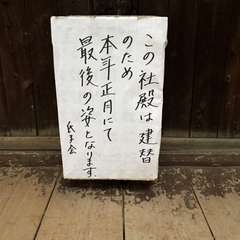 この社殿は建替
のため
本年正月にて
最後の姿となります
氏子会